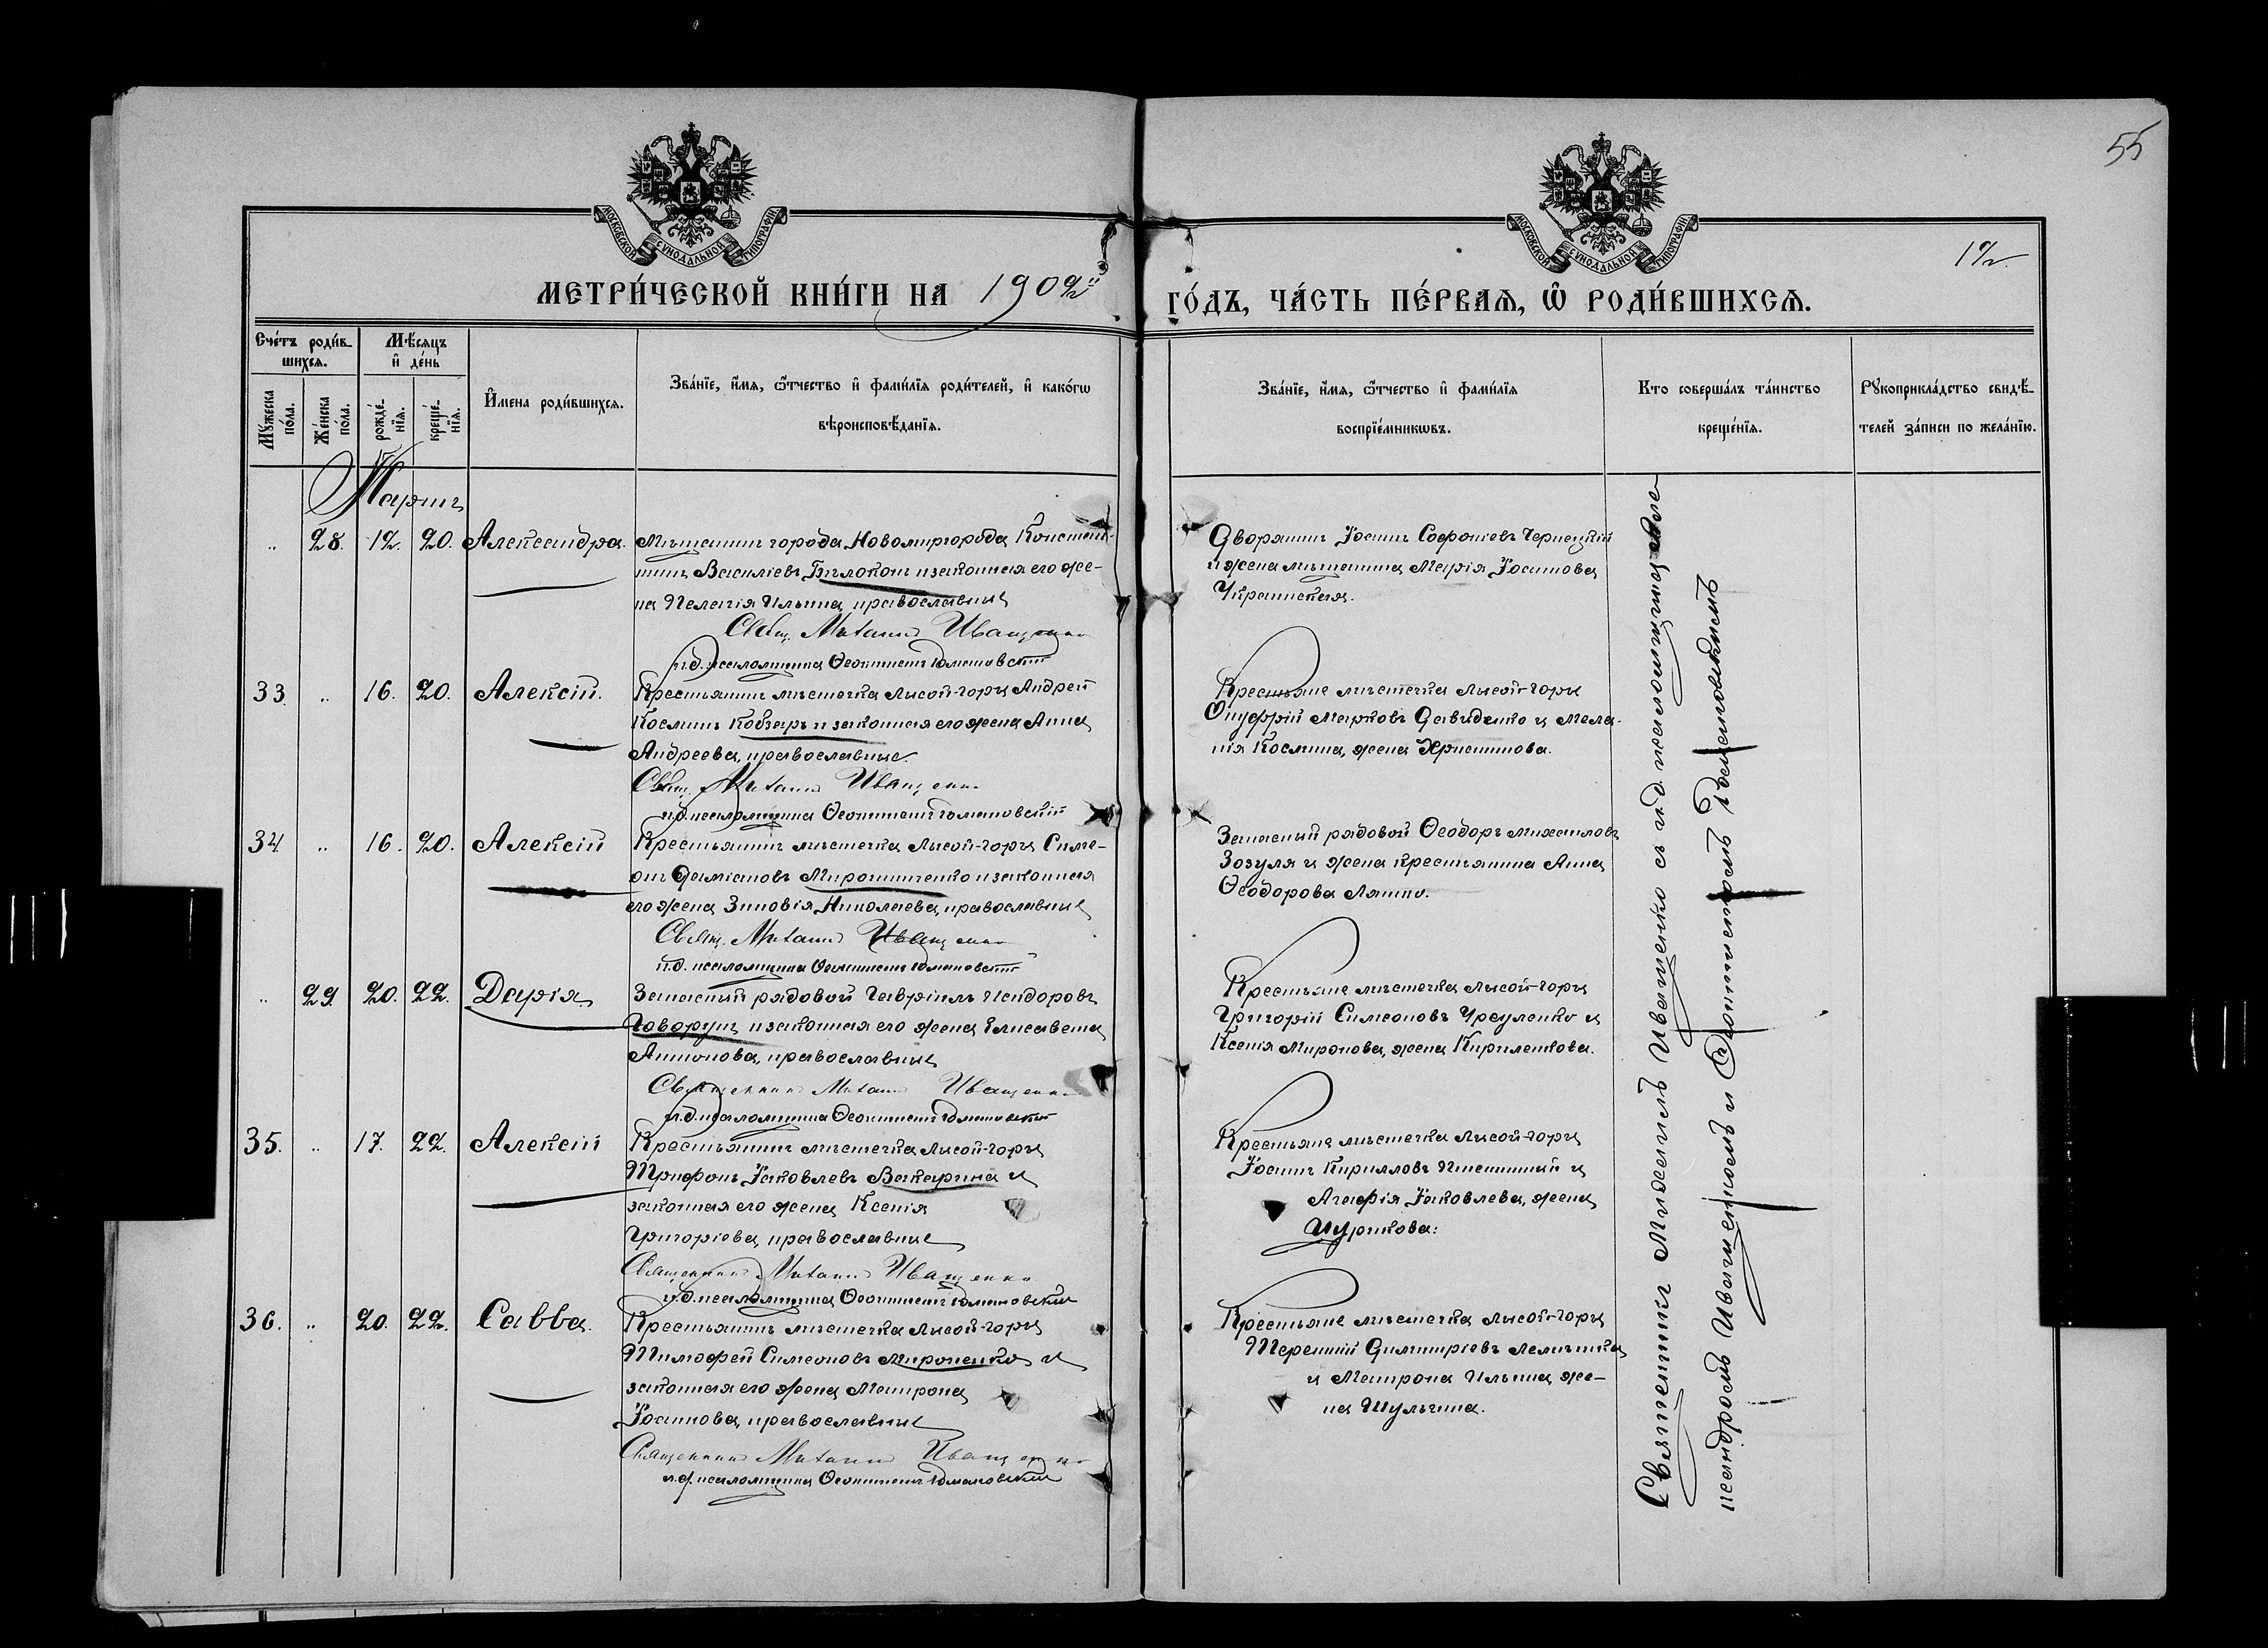 55
МОСКОВСКОЙ СѴНОДАЛЬНОЙ ТИПОГРАФІИ
МОСКОВСКОЙ СѴНОДАЛЬНОЙ ТИПОГРАФІИ
12.
МЕТРИ́ЧЕСКОЙ КНИ́ГИ НА 1902й ГО́ДЪ, ЧА́СТЬ ПЕ́РВАЯ, Ѡ҆ РОДИ́ВШИХСЯ.
Сче́тъ роди́в-
шихся.
Мѣ́сяцъ
и҆ де́нь
Му́жеска
по́ла.
Же́нска
по́ла.
рожде́-
нїя.
креще́-
нїя.
И҆мена роди́вшихся.
Зва́нїе, и҆́мя, ѻ҆́тчество и҆ фами́лїя роди́телей, и҆ како́гѡ
вѣроисповѣ́данїя.
Зва́нїе, и҆́мя, ѻ҆́тчество и҆ фами́лїя
воспрїе́мникѡвъ.
Кто соверша́лъ та́инство
креще́нїя.
Рукоприкла́дство свидѣ́-
телей за́писи по жела́нїю.
Мартъ
„ 28. 12. 20. Александра.
Мѣщанинъ города Новомиргорода Констан-
тинъ Василіевъ Бѣлоконъ и законная его же-
на Пелагія Ильина, православные
Свящ. Михаилъ Иващенко
и.д. псаломщика Ѳеоктистъ Романовскій
Дворянинъ Іоаннъ Софоніевъ Чернецкій
и жена мѣщанина Марія Іоаннова
Украинская.
33. „ 16. 20. Алексій.
Крестьянинъ мѣстечка Лысой-Горы Андрей
Косминъ Кобзарь и законная его жена Анна
Андреева, православные.
Свящ. Михаилъ Иващенко
и.д. псаломщика Ѳеоктистъ Романовскій
Крестьяне мѣстечка Лысой-Горы
Онуфрій Марковъ Давиденко и Мела-
нія Космина, жена Христинова.
34. „ 16. 20. Алексій
Крестьянинъ мѣстечка Лысой-Горы Симе-
онъ Даміановъ Мирошниченко и законная
его жена Зиновія Николаева, православные
Свящ. Михаилъ Иващенко
и.д. псаломщика Ѳеоктистъ Романовскій
Запасный рядовой Ѳеодоръ Михаиловъ
Зозуля и жена крестьянина Анна
Ѳеодорова Ляшко.
„ 29. 20. 22. Дарія.
Запасный рядовой Гавріилъ Исидоровъ
Говорунъ и законная его жена Елисавета
Антонова, православные
Священникъ Михаилъ Иващенко
и.д. псаломщика Ѳеоктистъ Романовскій
Крестьяне мѣстечка Лысой-Горы
Григорій Симеоновъ Урсуленко и
Ксенія Миронова, жена Кириленкова.
35. „ 17. 22. Алексій
Крестьянинъ мѣстечка Лысой-Горы
Трифонъ Іаковлевъ Вакарина и
законная его жена Ксенія
Григоріева, православные
Священникъ Михаилъ Иващенко
и.д. псаломщика Ѳеоктистъ Романовскій
Крестьяне мѣстечка Лысой-Горы
Іоаннъ Кирилловъ и
Агафія Іаковлева, жена
Цуркова.
36. „ 20. 22. Савва.
Крестьянинъ мѣстечка Лысой-Горы
Тимофей Симеоновъ Мироненко и
законная его жена Матрона
Іоаннова, православные
Священникъ Михаилъ Иващенко
и.д. псаломщика Ѳеоктистъ Романовскій
Крестьяне мѣстечка Лысой-Горы
Терентій Димитріевъ
и Матрона Ильина, же-
на Шульгина.
Священникъ Михаилъ Иващенко съ и.д. псаломщика Але-
ксандромъ Иващенкомъ и Ѳеоктистомъ Романовскимъ